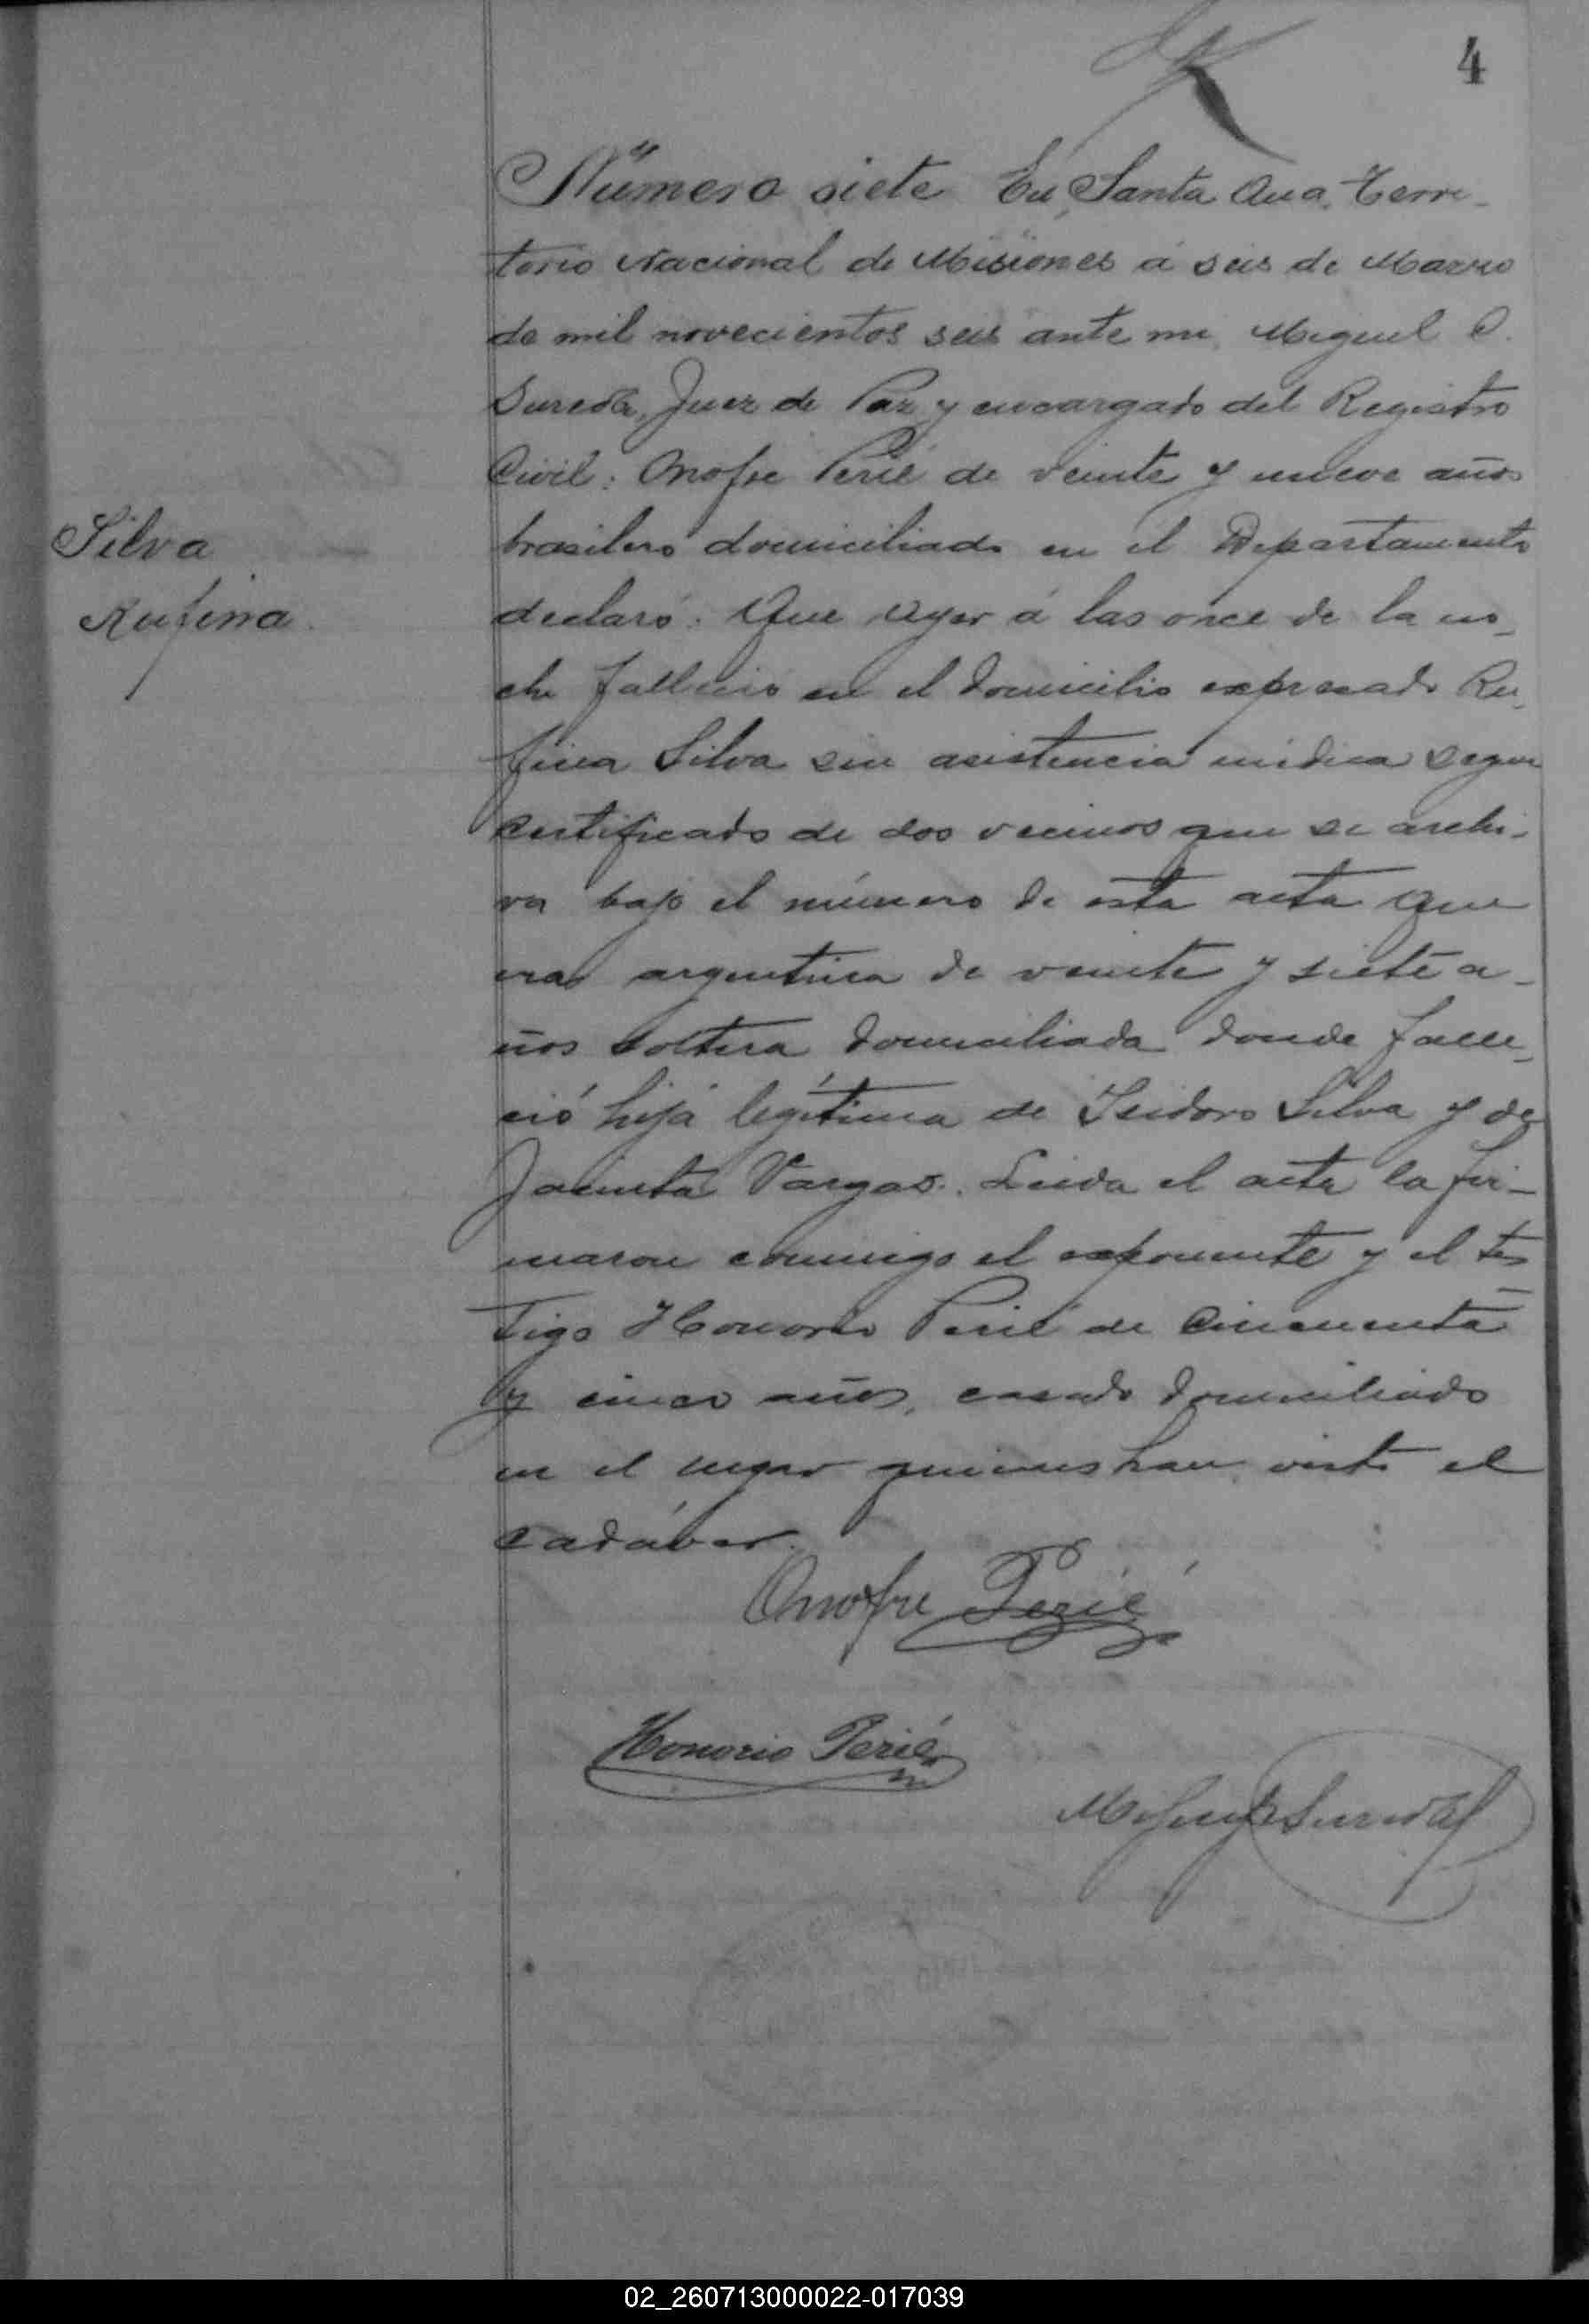 4
Número siete En Santa Ana, Terri-
torio Nacional de Misiones á seis de Marzo
de mil novecientos seis ante mi, Miguel
Sureda, Juez de Paz y encargado del Registro
Civil: Onofre Perié de veinte y nueve años
brasilero domiciliado en el Departamento
declaró: Que ayer á las once de la no-
che falleció en el domicilio expresado Ru-
fina Silva sin asistencia médica segun
certificado de dos vecinos que se archi-
va bajo el número de esta acta que
era argentina de veinte y siete a-
ños soltera domiciliada donde falle-
ció hija legítima de Isidoro Silva y de
Jacinta Vargas. Leida el acta la fir-
maron conmigo el exponente y el tes-
tigo Honorio Perié de cincuenta
y cinco años, casado domiciliado
en el lugar quienes han visto el
cadáver.
Silva
Rufina
Onofre Perié
Honorio Perié
Miguel Sureda
02_260713000022-017039